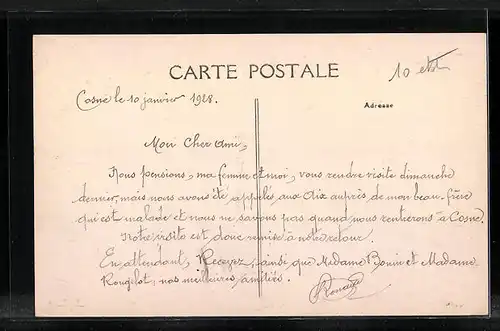 CARTE POSTALE
10
Cosne le 10 janvier 1928.
Adresse
Mon Cher Ami,
Nous pensions, ma femme et moi, vous rendre visite dimanche
dernier, mais nous avons été appelés aux Aix auprès de mon beau-frère
qui est malade et nous ne savons pas quand nous rentrerons à Cosne.
Notre visite est donc remise à notre retour.
En attendant, Recevez, ainsi que Madame Bonin et Madame
Rougelot, nos meilleures amitiés.